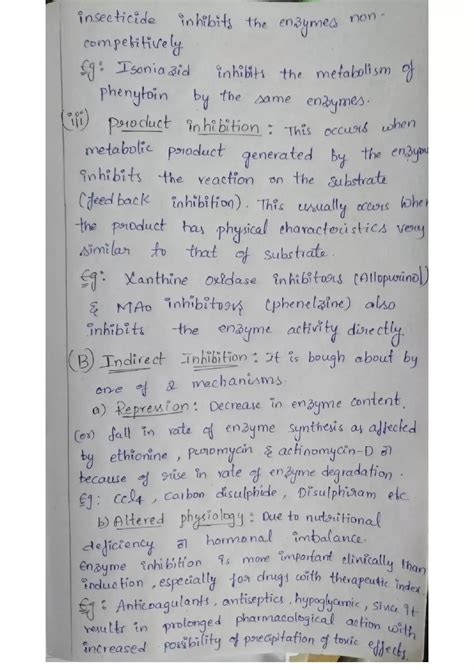 insecticide inhibits the enzymes non-
competitively
Eg: Isoniazid inhibits the metabolism of
phenytoin by the same enzymes.
(iii) Product inhibition: This occurs when
metabolic product generated by the enzyme
inhibits the reaction on the substrate
(feedback inhibition). This usually occurs when
the product has physical characteristics very
similar to that of substrate.
Eg: Xanthine oxidase inhibitors (Allopurinol)
& MAO inhibitors (phenelzine) also
inhibits the enzyme activity directly.
(B) Indirect Inhibition: It is bough about by
one of 2 mechanisms.
a) Repression: Decrease in enzyme content.
(or) fall in rate of enzyme synthesis as affected
by ethionine, puromycin & actinomycin-D or
because of rise in rate of enzyme degradation.
Eg: CCl4, Carbon disulphide, Disulphiram etc.
b) Altered physiology: Due to nutritional
deficiency or hormonal imbalance.
Enzyme inhibition is more important clinically than
induction, especially for drugs with therapeutic index
Eg: Anticoagulants, antiseptics, hypoglycamic, since it
results in prolonged pharmacological action with
increased possibility of precipitation of toxic effects.